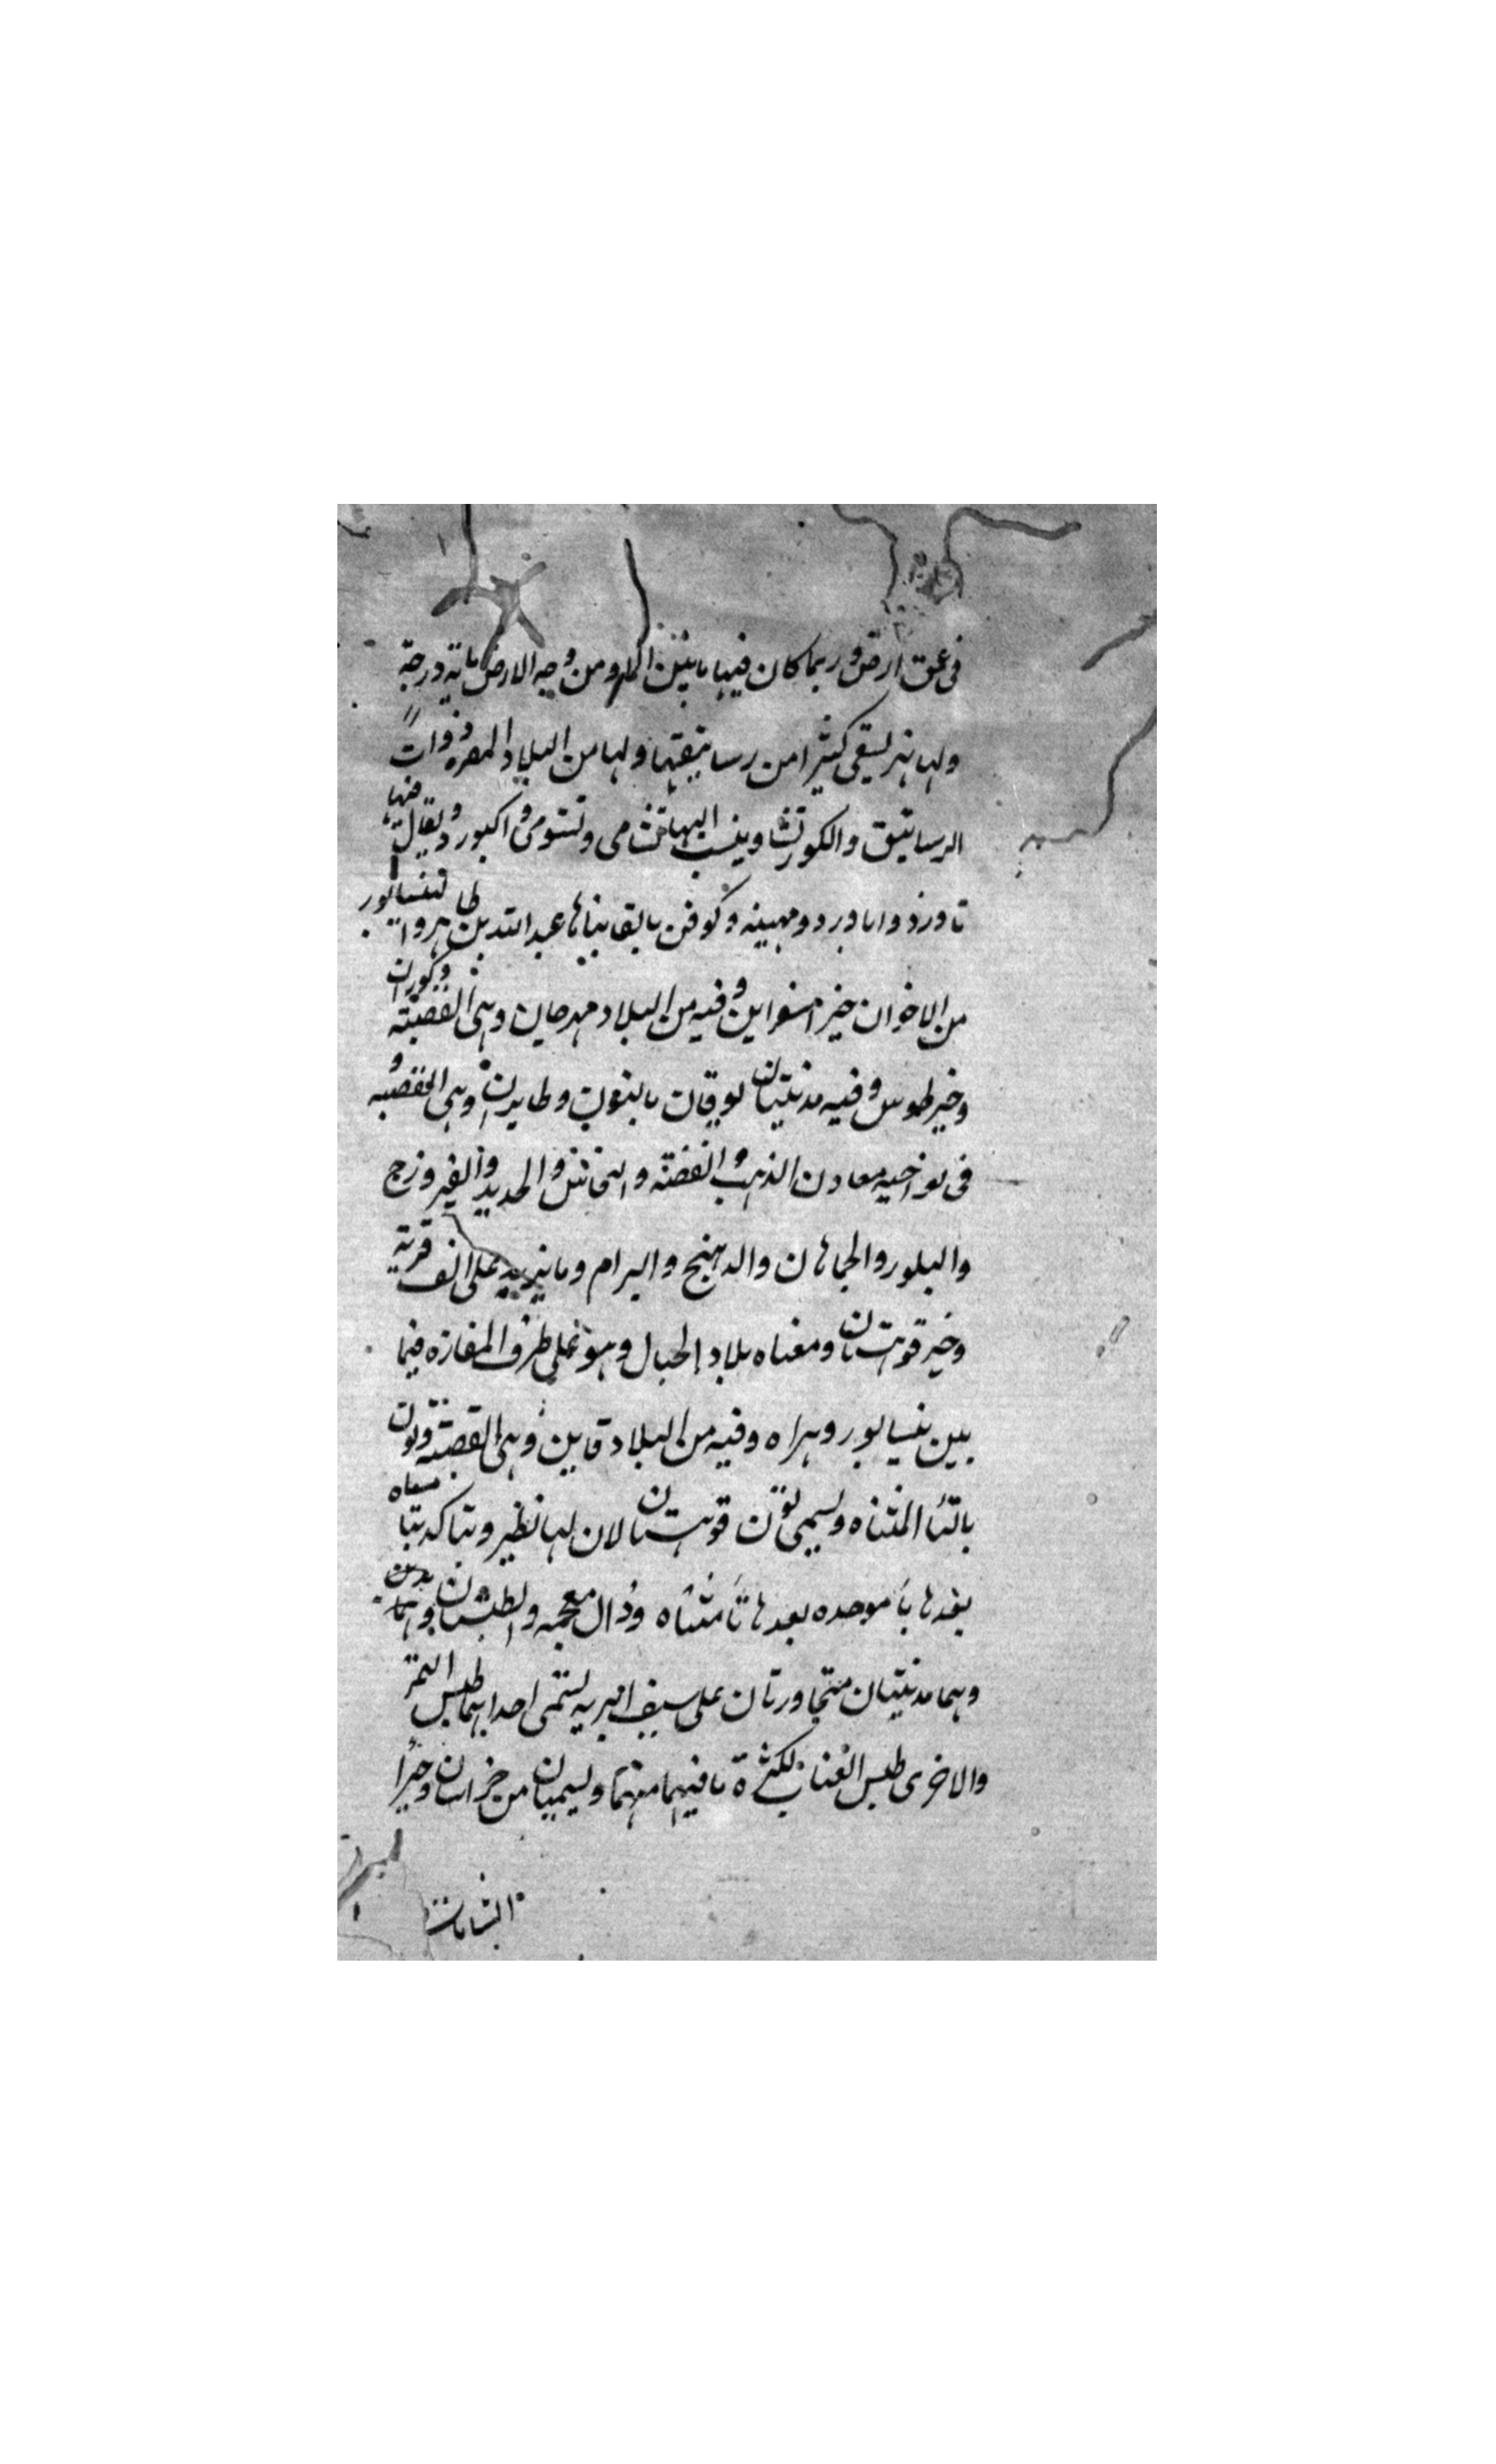 فى عمق ارض وربما كان فيها ما بين الماء ومن وجه الارض ماية درجة
ولها نهر يسقى كثيرا من رساتيقها ولها من البلاد المفردة ذوات
الرساتيق والكور نشا وينسب اليها نشامى ونشوى واكبورد ويقال فيها
تاورد واباورد ومهينه وكوفن بالقا بناها عبد الله بن طاهر والنيسابور
من الاخوان خير اسفراين وفيه من البلاد مهرجان وهى القصبة وكوران
وخير طوس وفيه مدينتان نوقان بالنون وطابران وهى القصبه و
فى نواحيه معادن الذهب والفضة والنحاس والحديد والفيروزج
والبلور والجماهان والدهنج والبرام وما يزيد على الف قرية
وخير قوهستان ومعناه بلاد الجبال وهو على طرف المفازه فيما
بين نيسابور وهراه وفيه من البلاد قاين وهى القصبة وتون
بالتا المثناه ويسمى تون قوهستان لان لها نظير وبتاكد بتا مثناه
بعدها با موحده بعدها تا مثناه وذال معجمه والطبسان
وهما مدينتان متجاورتان على سيف البريه يسمى احداهما طبس التمر
والاخرى طبس العناب لكثرة ما فيهما منهما ويسميان من خراسان وخيرا
الشامات